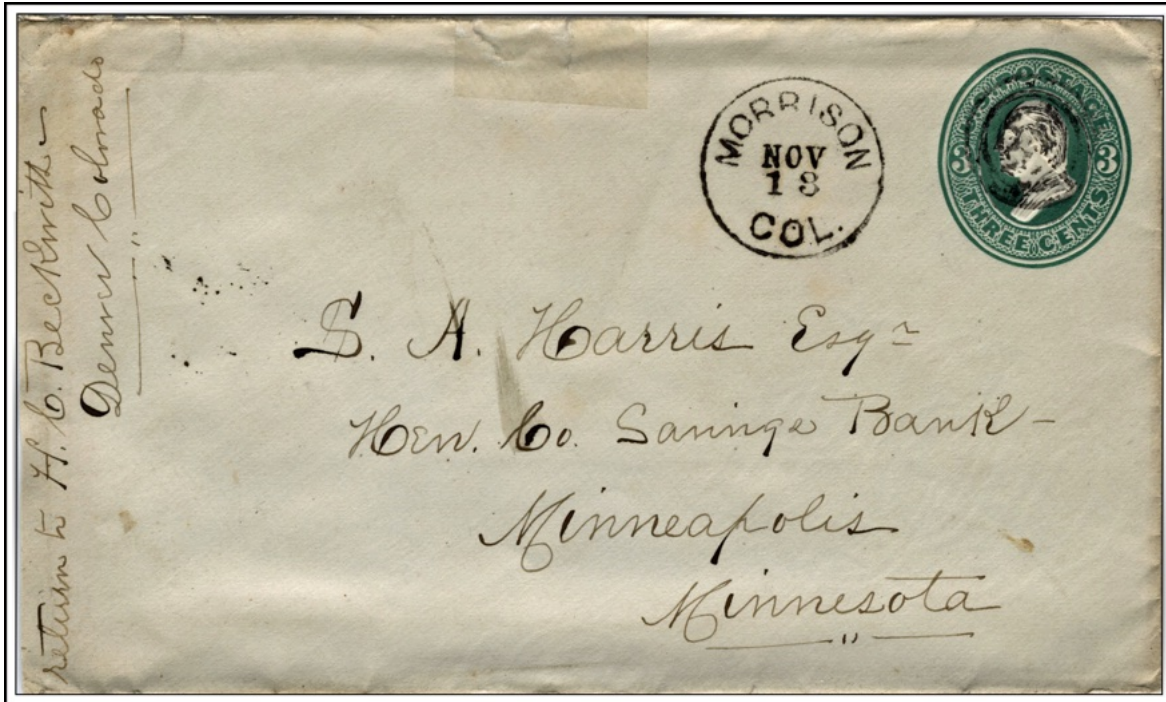 return to H. C. Beckwith
Denver Colorado
MORRISON
NOV
13
COL.
U.S. POSTAGE
3 3
THREE CENTS
S. A. Harris Esqr
Hen. Co. Savings Bank-
Minneapolis
Minnesota